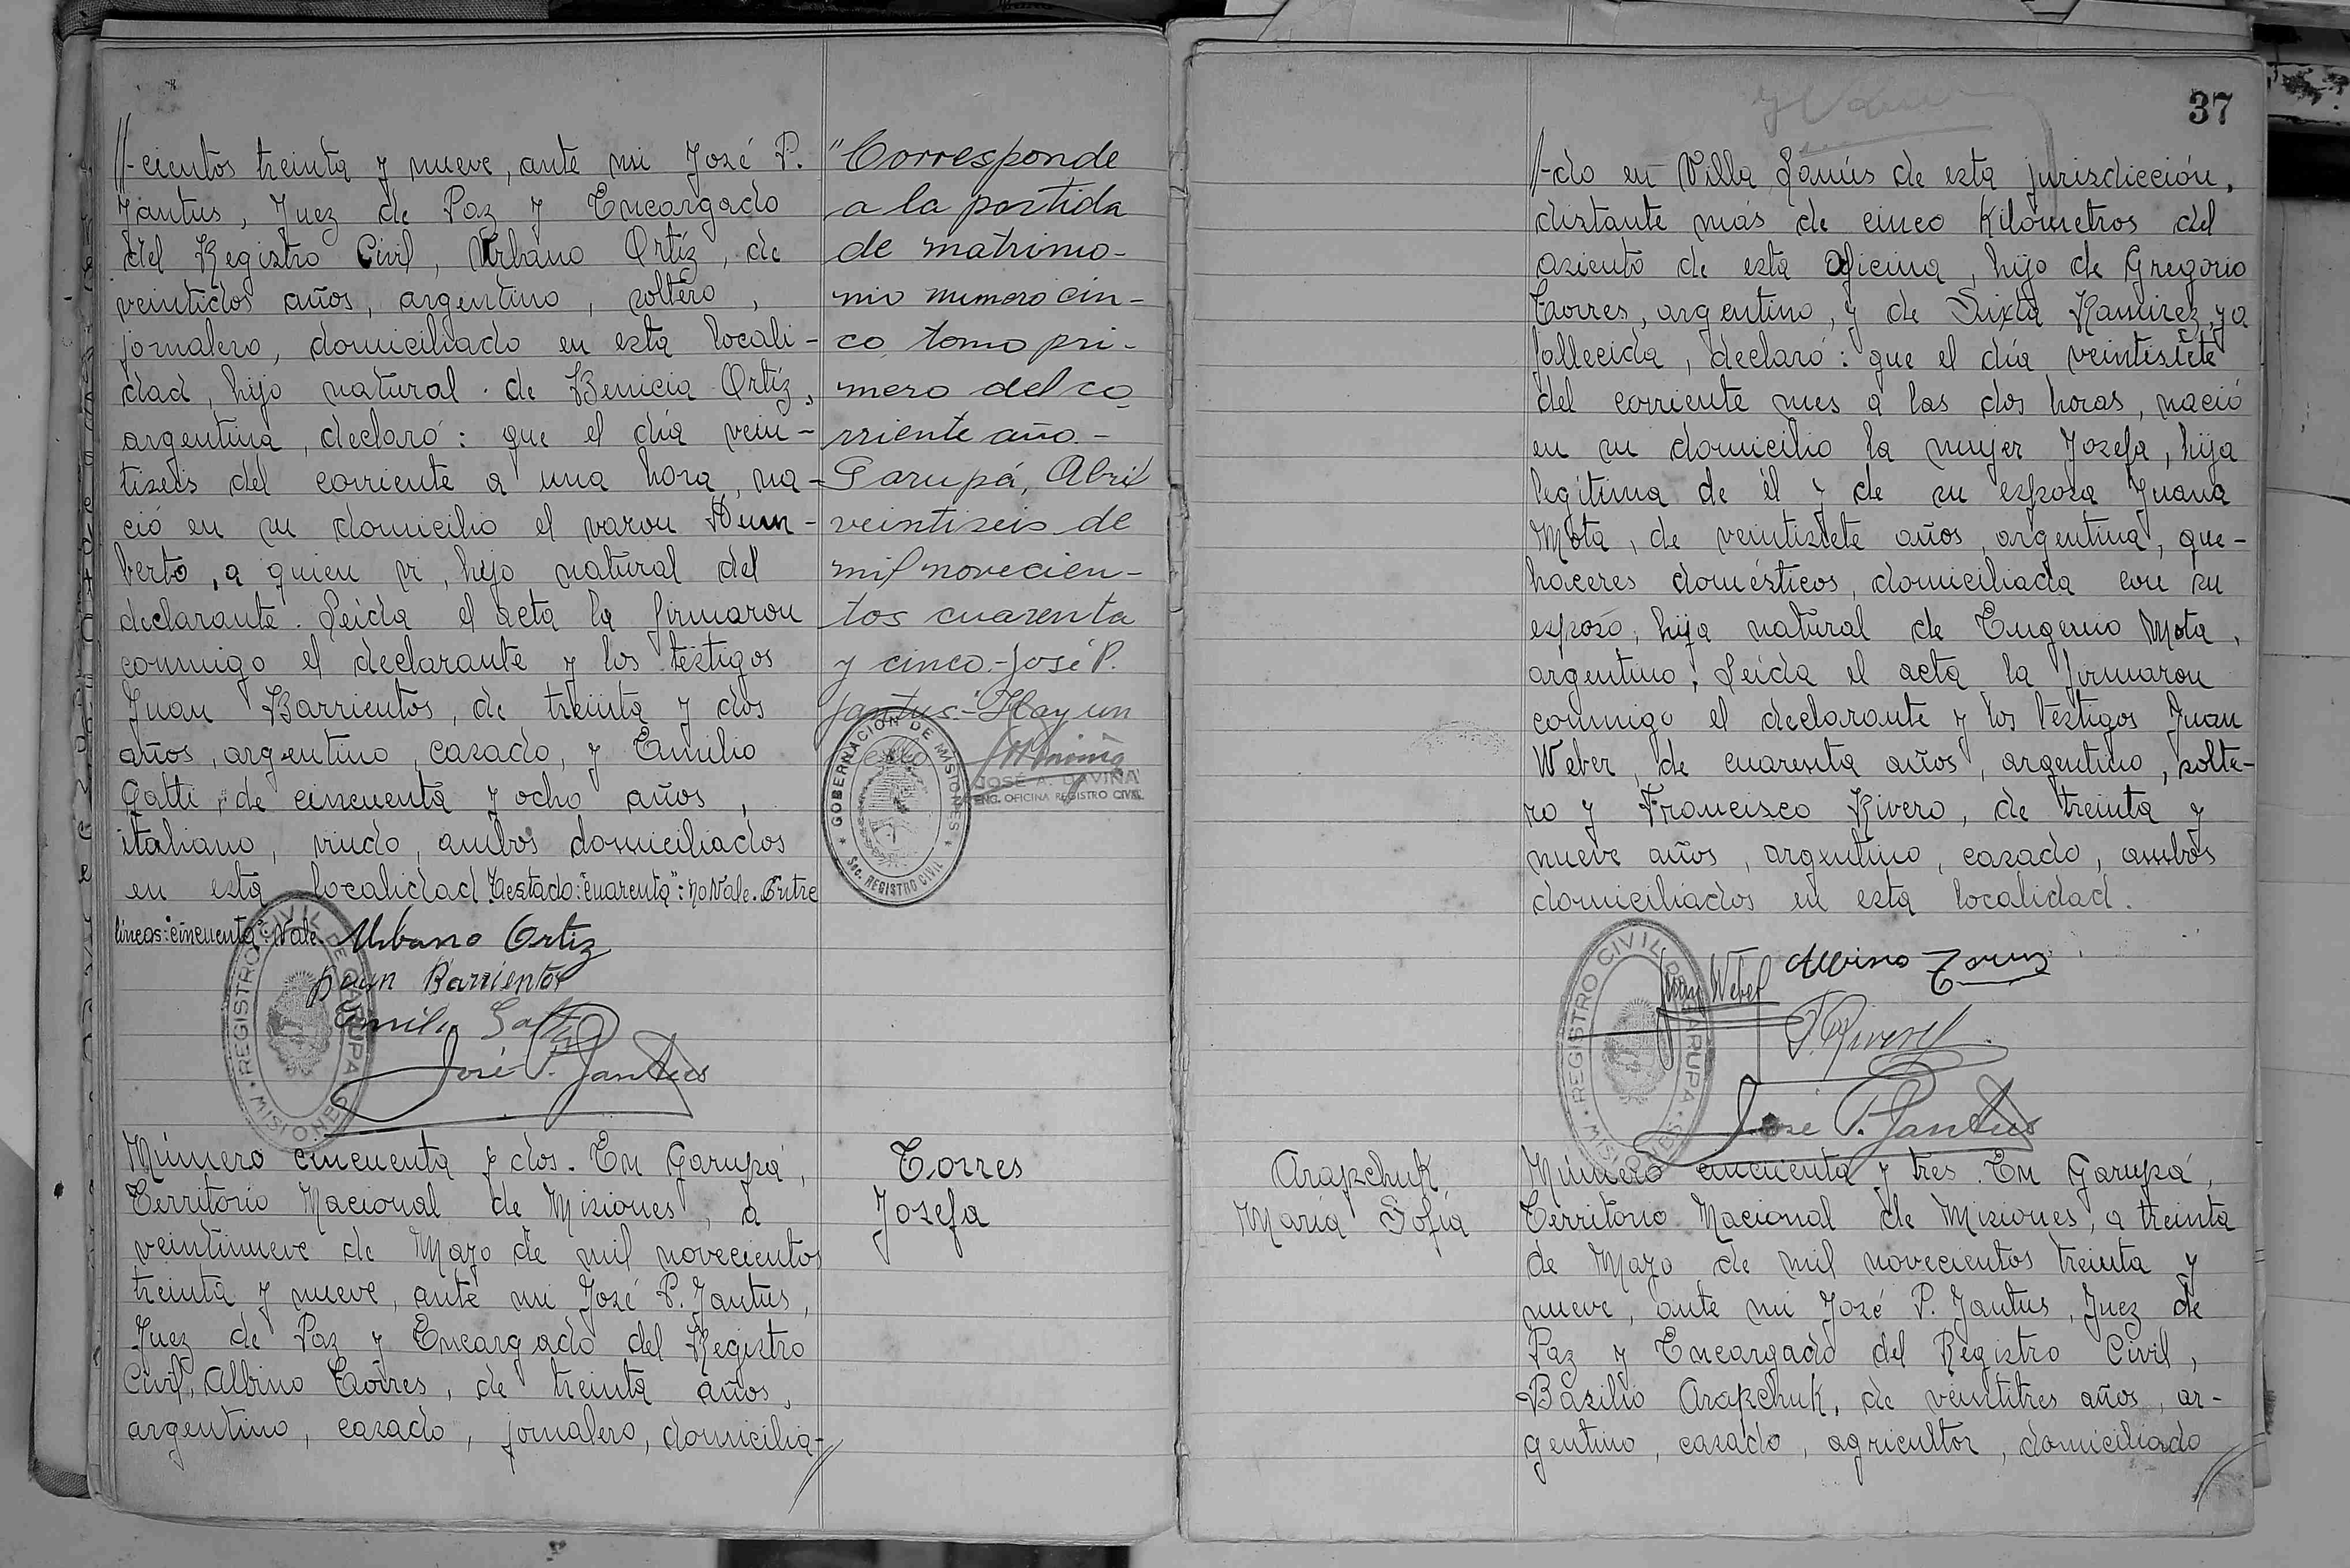 //-cientos treinta y nueve, ante mi José P.
Jantus, Juez de Paz y Encargado
del Registro Civil, Urbano Ortíz, de
veintidos años, argentino, soltero,
jornalero, domiciliado en esta locali-
dad, hijo natural de Benicia Ortíz,
argentina, declaró: que el día vein-
tiseis del corriente a una hora, na-
ció en su domicilio el varon Hum-
berto, a quien vi, hijo natural del
declarante. Leída el acta la firmaron
conmigo el declarante y los testigos
Juan Barrientos, de treinta y dos
años, argentino, casado, y Emilio
Gatti, de cincuenta y ocho años,
italiano, viudo, ambos domiciliados
en esta localidad. Testado: "cuarenta": no Vale. Entre
lineas: "cincuenta": Vale.
Urbano Ortiz
Juan Barrientos
Emilio Gatti
José P. Jantus
REGISTRO CIVIL DE GARUPA
MISIONES
"Corresponde
a la partida
de matrimo-
nio numero cin-
co, tomo pri-
mero del co-
rriente año.-
Garupá, Abril
veintiseis de
mil novecien-
tos cuarenta
y cinco.- José P.
Jantus".- Hay un
sello
GOBERNACION DE MISIONES
Sec. REGISTRO CIVIL
JOSÉ A. DAVIÑA
ENC. OFICINA REGISTRO CIVIL
Número cincuenta y dos. En Garupá,
Territorio Nacional de Misiones, a
veintinueve de Mayo de mil novecientos
treinta y nueve, ante mi José P. Jantus,
Juez de Paz y Encargado del Registro
Civil, Albino Torres, de treinta años,
argentino, casado, jornalero, domicilia-//
Torres
Josefa
37
//-do en Villa Lanús de esta jurisdicción,
distante más de cinco Kilómetros del
asiento de esta Oficina, hijo de Gregorio
Torres, argentino, y de Sixta Ramirez, ya
fallecida, declaró: que el día veintisiete
del corriente mes a las dos horas, nació
en su domicilio la mujer Josefa, hija
legítima de él y de su esposa Juana
Mota, de veintisiete años, argentina, que-
haceres domésticos, domiciliada con su
esposo, hija natural de Eugenio Mota,
argentino. Leída el acta la firmaron
conmigo el declarante y los testigos Juan
Weber, de cuarenta años, argentino, solte-
ro y Francisco Rivero, de treinta y
nueve años, argentino, casado, ambos
domiciliados en esta localidad.
Albino Torres
Juan Weber
F. Rivero
José P. Jantus
REGISTRO CIVIL DE GARUPA
MISIONES
Arapchuk
María Sofía
Número cincuenta y tres. En Garupá,
Territorio Nacional de Misiones, a treinta
de Mayo de mil novecientos treinta y
nueve, ante mi José P. Jantus, Juez de
Paz y Encargado del Registro Civil,
Basilio Arapchuk, de veintitres años, ar-
gentino, casado, agricultor, domiciliado//